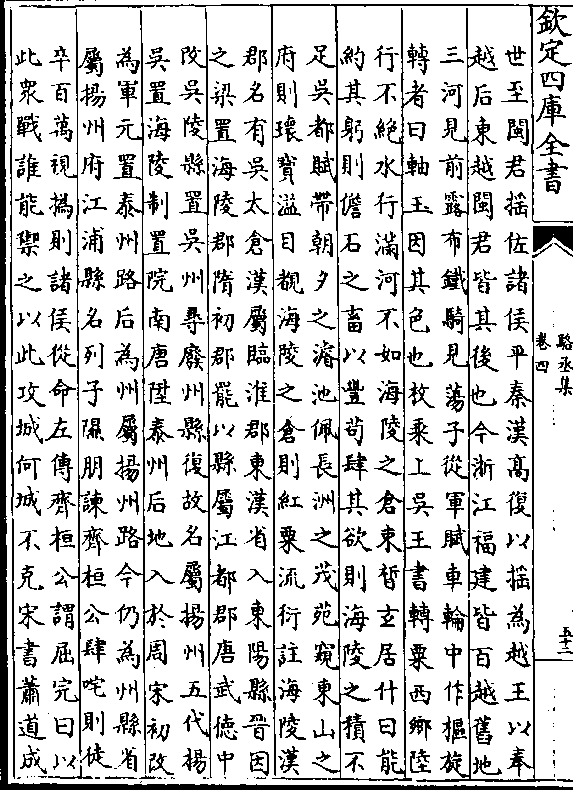 欽定四庫全書
駱丞集
卷四
五十二
世至閩君揺佐諸侯平秦漢髙復以揺為越王以奉
越后東越閩君皆其後也今浙江福建皆百越舊地
三河見前露布鐡騎見蕩子從軍賦車輪中作樞旋
轉者曰軸玉因其色也枚乘上吳王書轉粟西鄉陸
行不絶水行滿河不如海陵之倉東晳玄居什曰能
約其躬則儋石之畜以豐苟肆其欲則海陵之積不
足吳都賦帶朝夕之濬池佩長洲之茂苑窺東山之
府則瓌寳溢目覩海陵之倉則紅粟流衍註海陵漢
郡名有吳太倉漢屬臨淮郡東漢省入東陽縣晉因
之梁置海陵郡隋初郡罷以縣屬江都郡唐武徳中
改吳陵縣置吳州尋廢州縣復故名屬揚州五代揚
吳置海陵制置院南唐陞泰州后地入於周宋初改
為軍元置泰州路后為州屬揚州路今仍為州縣省
屬揚州府江浦縣名列子隰朋諫齊桓公肆咤則徒
卒百萬視撝則諸侯從命左傳齊桓公謂屈完曰以
此衆戰誰能禦之以此攻城何城不克宋書蕭道成